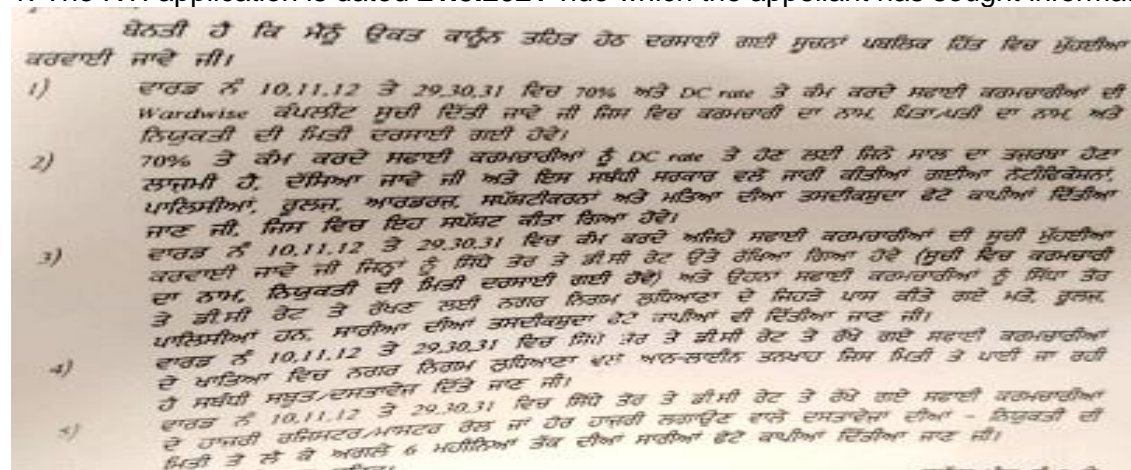 1. The RTI application is dated 21.6.2021 vide which the appellant has sought informa
ਬੇਨਤੀ ਹੈ ਕਿ ਮੈਨੂੰ ਉਕਤ ਕਾਨੂੰਨ ਤਹਿਤ ਹੇਠ ਦਰਸਾਈ ਗਈ ਸੂਚਨਾਂ ਪਬਲਿਕ ਹਿੱਤ ਵਿਚ ਮੁੱਹਈਆ
ਕਰਵਾਈ ਜਾਵੇ ਜੀ।
1) ਵਾਰਡ ਨੰ 10,11,12 ਤੇ 29,30,31 ਵਿਚ 70% ਅਤੇ DC rate ਤੇ ਕੰਮ ਕਰਦੇ ਸਫਾਈ ਕਰਮਚਾਰੀਆਂ ਦੀ
Wardwise ਕੰਪਲੀਟ ਸੂਚੀ ਦਿੱਤੀ ਜਾਵੇ ਜੀ ਜਿਸ ਵਿਚ ਕਰਮਚਾਰੀ ਦਾ ਨਾਮ, ਪਿਤਾ/ਪਤੀ ਦਾ ਨਾਮ, ਅਤੇ
ਨਿਯੁਕਤੀ ਦੀ ਮਿਤੀ ਦਰਸਾਈ ਗਈ ਹੋਵੇ।
2) 70% ਤੇ ਕੰਮ ਕਰਦੇ ਸਫਾਈ ਕਰਮਚਾਰੀਆਂ ਨੂੰ DC rate ਤੇ ਹੋਣ ਲਈ ਜਿਨੇ ਸਾਲ ਦਾ ਤਜ਼ਰਬਾ ਹੋਣਾ
ਲਾਜ਼ਮੀ ਹੈ, ਦੱਸਿਆ ਜਾਵੇ ਜੀ ਅਤੇ ਇਸ ਸਬੰਧੀ ਸਰਕਾਰ ਵਲੋਂ ਜਾਰੀ ਕੀਤੀਆਂ ਗਈਆ ਨੋਟੀਫਿਕੇਸ਼ਨਾਂ,
ਪਾਲਿਸੀਆਂ, ਰੂਲਜ਼, ਆਰਡਰਜ਼, ਸਪੱਸ਼ਟੀਕਰਨਾਂ ਅਤੇ ਮਤਿਆ ਦੀਆ ਤਸਦੀਕਸ਼ੁਦਾ ਫੋਟੋ ਕਾਪੀਆਂ ਦਿੱਤੀਆ
ਜਾਣ ਜੀ, ਜਿਸ ਵਿਚ ਇਹ ਸਪੱਸ਼ਟ ਕੀਤਾ ਗਿਆ ਹੋਵੇ।
3) ਵਾਰਡ ਨੰ 10,11,12 ਤੇ 29,30,31 ਵਿਚ ਕੰਮ ਕਰਦੇ ਅਜਿਹੇ ਸਫਾਈ ਕਰਮਚਾਰੀਆਂ ਦੀ ਸੂਚੀ ਮੁੱਹਈਆ
ਕਰਵਾਈ ਜਾਵੇ ਜੀ ਜਿਨ੍ਹਾਂ ਨੂੰ ਸਿੱਧੇ ਤੋਰ ਤੇ ਡੀ.ਸੀ ਰੇਟ ਉੱਤੇ ਰੱਖਿਆ ਗਿਆ ਹੋਵੇ (ਸੂਚੀ ਵਿਚ ਕਰਮਚਾਰੀ
ਦਾ ਨਾਮ, ਨਿਯੁਕਤੀ ਦੀ ਮਿਤੀ ਦਰਸਾਈ ਗਈ ਹੋਵੇ) ਅਤੇ ਉਹਨਾਂ ਸਫਾਈ ਕਰਮਚਾਰੀਆਂ ਨੂੰ ਸਿੱਧਾ ਤੋਰ
ਤੇ ਡੀ.ਸੀ ਰੇਟ ਤੇ ਰੱਖਣ ਲਈ ਨਗਰ ਨਿਗਮ ਲੁਧਿਆਣਾ ਦੇ ਜਿਹੜੇ ਪਾਸ ਕੀਤੇ ਗਏ ਮਤੇ, ਰੂਲਜ਼,
ਪਾਲਿਸੀਆਂ ਹਨ, ਸਾਰੀਆ ਦੀਆਂ ਤਸਦੀਕਸ਼ੁਦਾ ਫੋਟੋ ਕਾਪੀਆਂ ਵੀ ਦਿੱਤੀਆ ਜਾਣ ਜੀ।
4) ਵਾਰਡ ਨੰ 10,11,12 ਤੇ 29,30,31 ਵਿਚ ਸਿੱਧੇ ਤੋਰ ਤੇ ਡੀ.ਸੀ ਰੇਟ ਤੇ ਰੱਖੇ ਗਏ ਸਫਾਈ ਕਰਮਚਾਰੀਆਂ
ਦੇ ਖਾਤਿਆ ਵਿਚ ਨਗਰ ਨਿਗਮ ਲੁਧਿਆਣਾ ਵਲੋਂ ਆਨ-ਲਾਈਨ ਤਨਖਾਹ ਜਿਸ ਮਿਤੀ ਤੇ ਪਾਈ ਜਾ ਰਹੀ
ਹੈ ਸਬੰਧੀ ਸਬੂਤ/ਦਸਤਾਵੇਜ਼ ਦਿੱਤੇ ਜਾਣ ਜੀ।
5) ਵਾਰਡ ਨੰ 10,11,12 ਤੇ 29,30,31 ਵਿਚ ਸਿੱਧੇ ਤੋਰ ਤੇ ਡੀ.ਸੀ ਰੇਟ ਤੇ ਰੱਖੇ ਗਏ ਸਫਾਈ ਕਰਮਚਾਰੀਆਂ
ਦੇ ਹਾਜ਼ਰੀ ਰਜਿਸਟਰ/ਮਾਸਟਰ ਰੋਲ ਜਾਂ ਹੋਰ ਹਾਜ਼ਰੀ ਲਗਾਉਣ ਵਾਲੇ ਦਸਤਾਵੇਜ਼ਾ ਦੀਆ - ਨਿਯੁਕਤੀ ਦੀ
ਮਿਤੀ ਤੇ ਲੈ ਕੇ ਅਗਲੇ 6 ਮਹੀਨਿਆ ਤੱਕ ਦੀਆਂ ਸਾਰੀਆਂ ਫੋਟੋ ਕਾਪੀਆਂ ਦਿੱਤੀਆ ਜਾਣ ਜੀ।